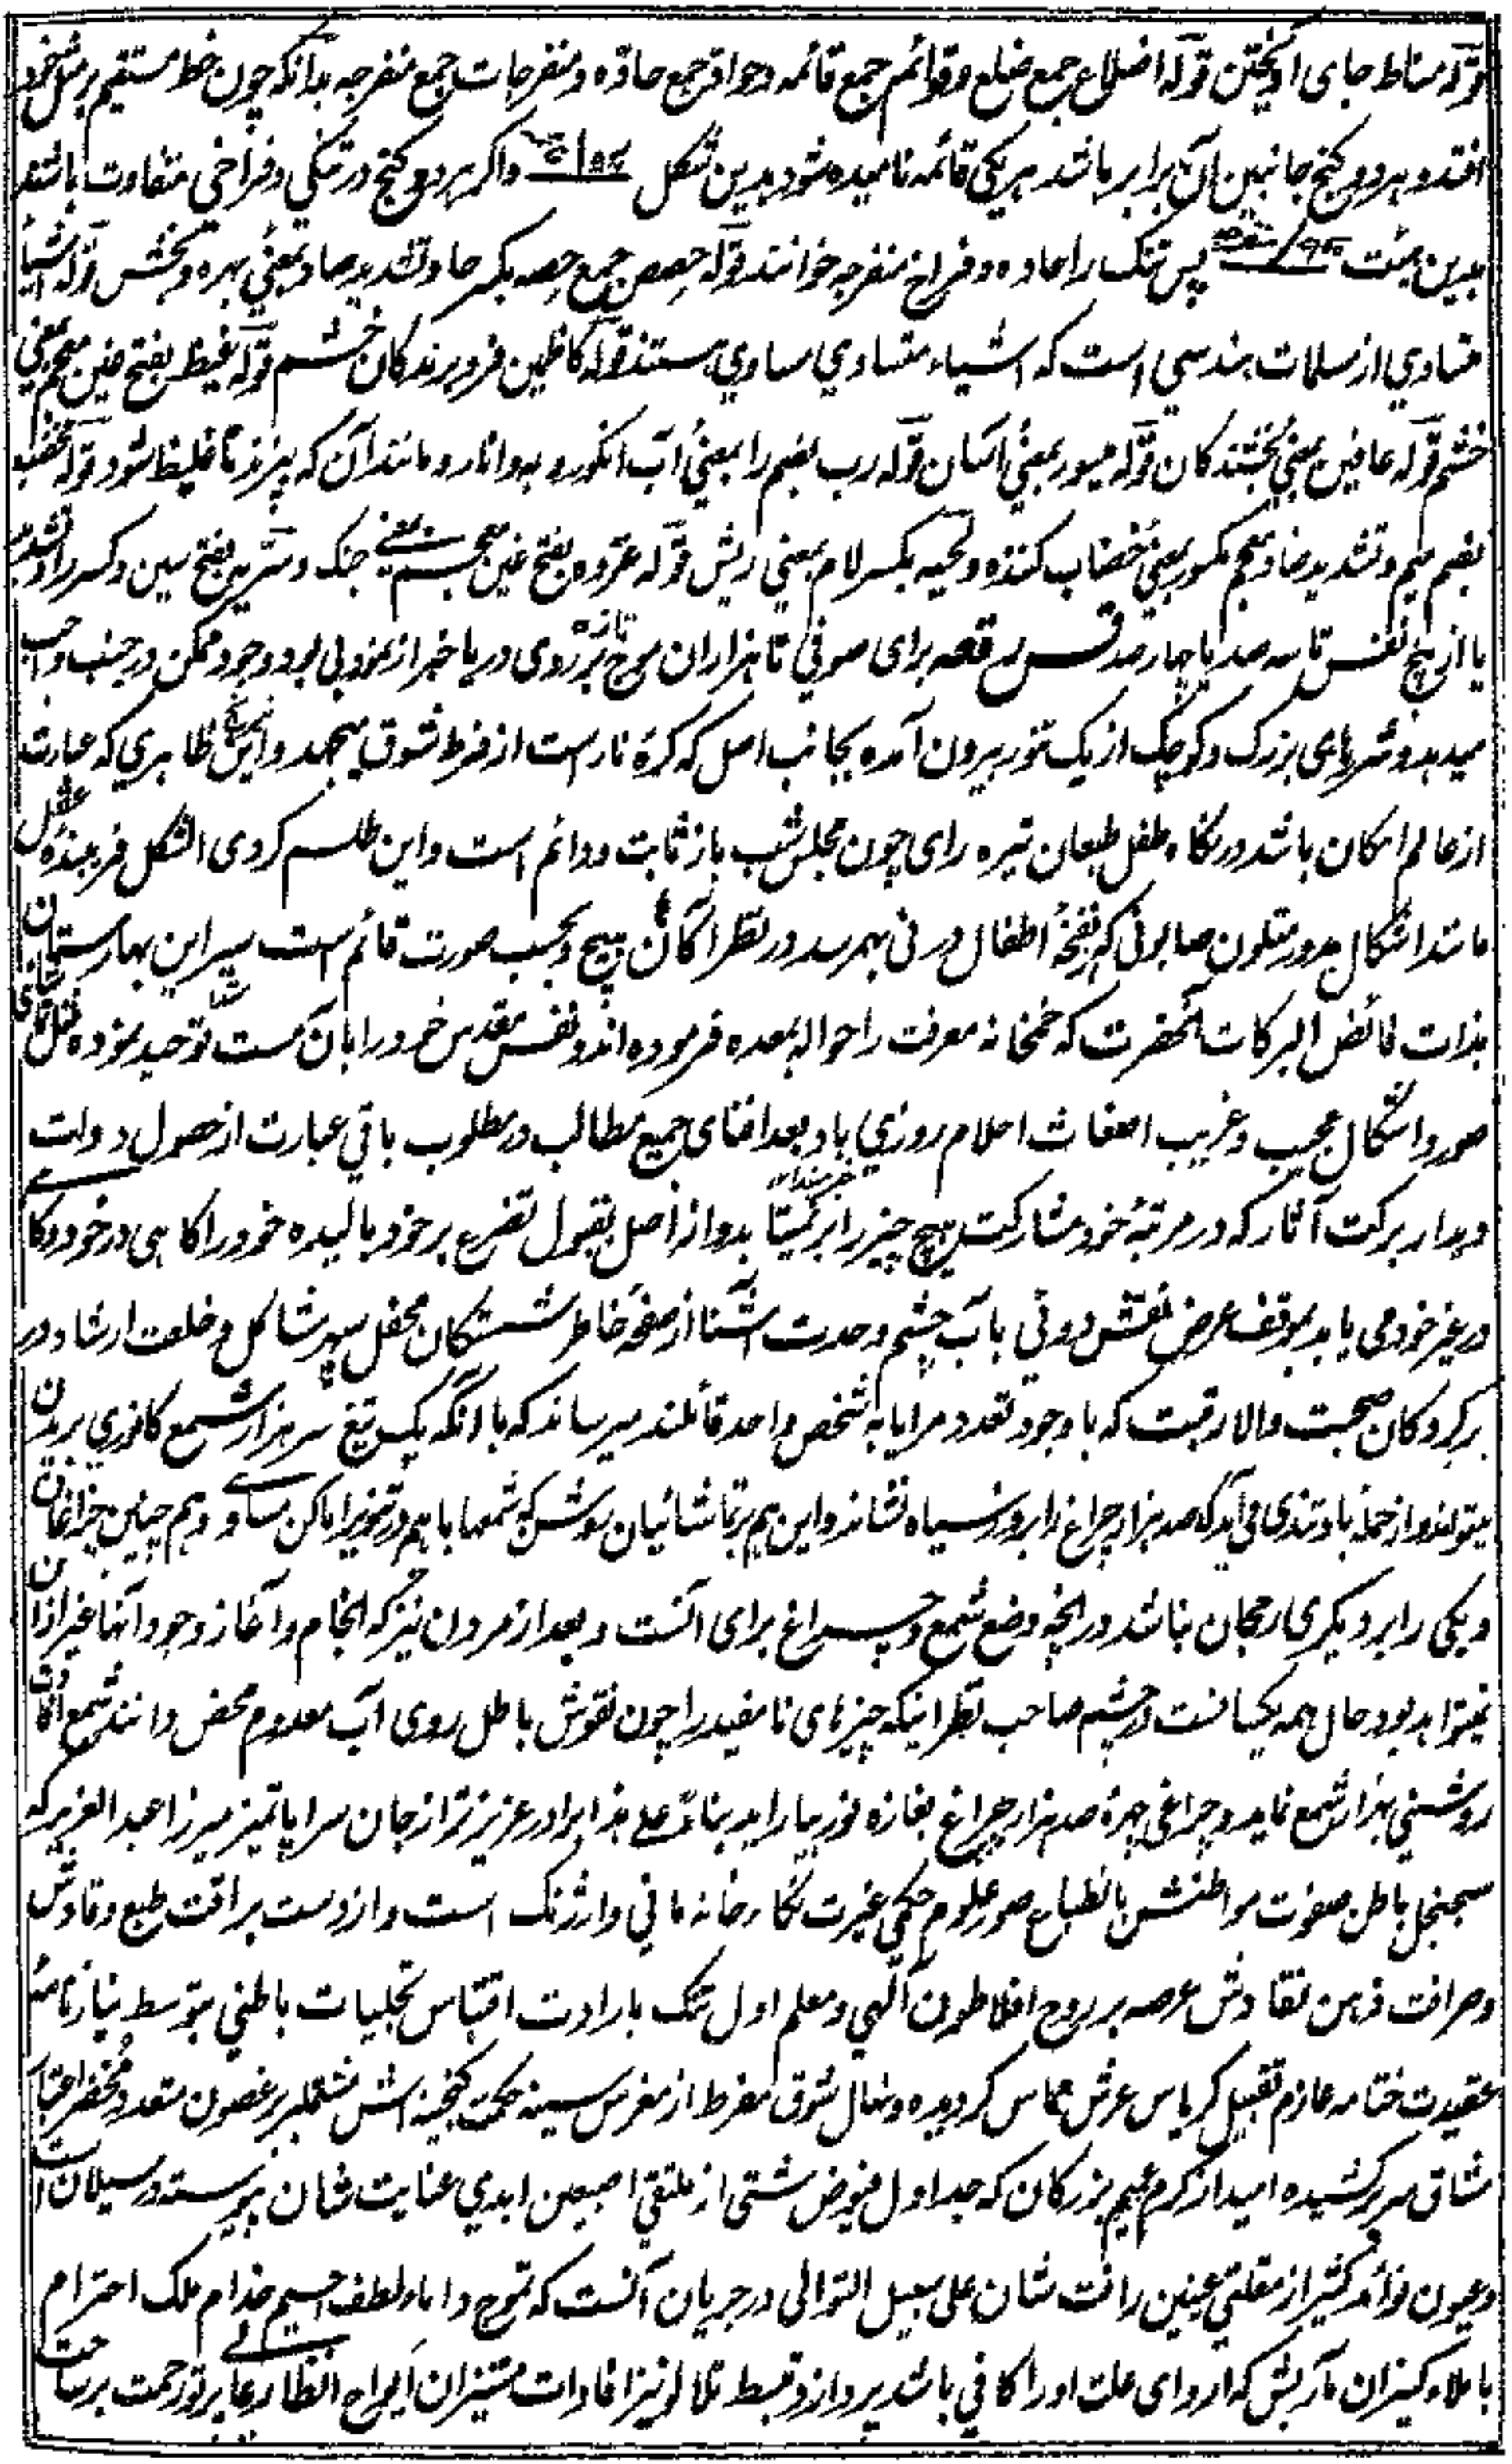 قوله مناط جای آویختن قوله اضلاع جمع ضلع و قوائم جمع قائمه و حواد جمع حاده و منفرجات جمع منفرجه بدانکه چون خط مستقیم بر مثل خود
افتد و هر دو کنج جانبین آن برابر باشد هر یکی قائمه نامیده شود بدین شکل واگر هر دو کنج در تنگی و فراخی متفاوت باشند
بدین هیئت پس تنگ را حاده و فراخ منفرجه خوانند قوله حصص جمع حصه بکسر حا و تشدید صاد بمعنی بهره و بخش قوله اشیا
متساوی از مسلمات هندسی است که اشیاء متساوی مساوی هستند قوله کاظمین فروبرندگان خشم قوله غیظ بفتح غین معجم بمعنی
خشم قوله عافین بمعنی بخشندگان قوله میسور بمعنی آسان قوله رب بضم را بمعنی آب انگور و به و انار و مانند آن که بپزند تا غلیظ شود قوله مخضب
بضم میم و تشدید ضاد معجم مکسور بمعنی خضاب کننده و لحیه بکسر لام بمعنی ریش قوله غزوه بفتح غین معجم بمعنی جنگ و سریه بفتح سین و کسر را و تشدید
یا از پنج نفس تا سه صد یا چار صد قس رقعه برای صوفی تا هزاران موج تازه بر روی دریا خبر از بودی بود وجود ممکن در جنب واجب
میدهد و شررهای بزرگ و کوچک از یک تنور بیرون آمده بجانب اصل که کرهٔ نار است از فرط شوق میجهد و این ظاهری که عبارت
از عالم امکان باشد در نگاه طفل طبعان تیره رای چون مجلس شب باز ثابت و دائم است و این طلسم کروی الشکل فریبندهٔ عقل
مانند اشکال مدور متلون صابونی که بنفخهٔ اطفال در نی بهمرسد در نظر آگاهان هیچ و بحسب صورت قائم است سیر این بهارستان
بذات فائض البرکات آنحضرت که خمخانه معرفت را حواله بمعده فرموده اند و نفس مقدس خود را بآن مست توحید نموده مثل
صور و اشکال عجیب و غریب اضغاث احلام روزی باد بعد افنای جمیع مطالب در مطلوب باقی عبارت از حصول دولت
دیدار برکت آثار که در مرتبهٔ خود مشارکت هیچ چیز را بر نمیتابد و از اصل بقول تفرع بر خود بالیده خود را گاهی در خود و گاهی
در غیر خود می یابد بموقف عرض نقش دوئی بآب چشم وحدت آشنا از صفحهٔ خاطر شستگان محفل سپهر مشاکل و خلعت ارشاد در
بر کردگان صحبت والا رتبت که با وجود تعدد مرایا به شخص واحد قائلند میرساند که با آنکه یک تیغ سر هزار شمع کافوری بریدن
میتواند و از حملهٔ باد تندی می آید که صد هزار چراغ را بروز سیاه نشاند و این هم بر تماشائیان روشن که شمعها باهم در تنویر اماکن مساوی و هم چنین چراغان
و یکی را بر دیگری رجحان نباشد در آنچه وضع شمع و چراغ برای آنست و بعد از مردن نیز که انجام و آغاز وجود آنها غیر از آن
نمیزاید بود حال همه یکسانست در چشم صاحب نظر اینکه چیزهای نامفید را چون نقوش باطل روی آب معدوم محض دانند
روشنی هزار شمع نماید و چراغی چهرهٔ صد هزار چراغ بغازهٔ نور بیاراید بناءً علی هذا برادر عزیزتر از جان سراپا تمیز میرزا عبد العزیز که
سجنجل باطن صفوت مواطنش بانطباع صور علوم حکمی غیرت نگارخانه مانی و ارژنگ است و از دست براقت طبع وقادش
و صرافت ذهن نقادش عرصه بر روح افلاطون الٓهی و معلم اول تنگ بارادت اقتباس تجلیات باطنی بتوسط نیازنامه
عقیدت ختامه عازم تقبیل کریاس عرش مماس گردیده و نهال شوق مفرط از مغرس سینه حکمت گنجینه اش مشتملبر غصون متعدد
شاق سر بر کشیده امید از کرم عمیم بزرگان که جداول فیوض شتی از ملتقی اصبعین ایدی عنایت شان پیوسته در سیلان است
و عیون فوائد کثیر از مقلتی عینین رافت شان علی سبیل التوالی در جریان آنست که تموج داماء لطف جسیم خدام ملک احترام
باملاء کیزان مآربش که اروای علت او را کافی باشد پردازد و تبسط تلالوٴ نیز افادات مستنیران ابراج انظار برتو رحمت بر ساحت